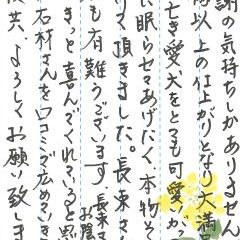 謝の気持ちしかありません
像以上の仕上がりとなり大満足
亡き愛犬をとても可愛いが
に眠らせてあげたく本物そ
って頂きました。長束さ
も有難うございます。長束さ
お陰
きっと喜んでくれていると思
石材さんを口コミで広めていき
後共、よろしくお願い致しま